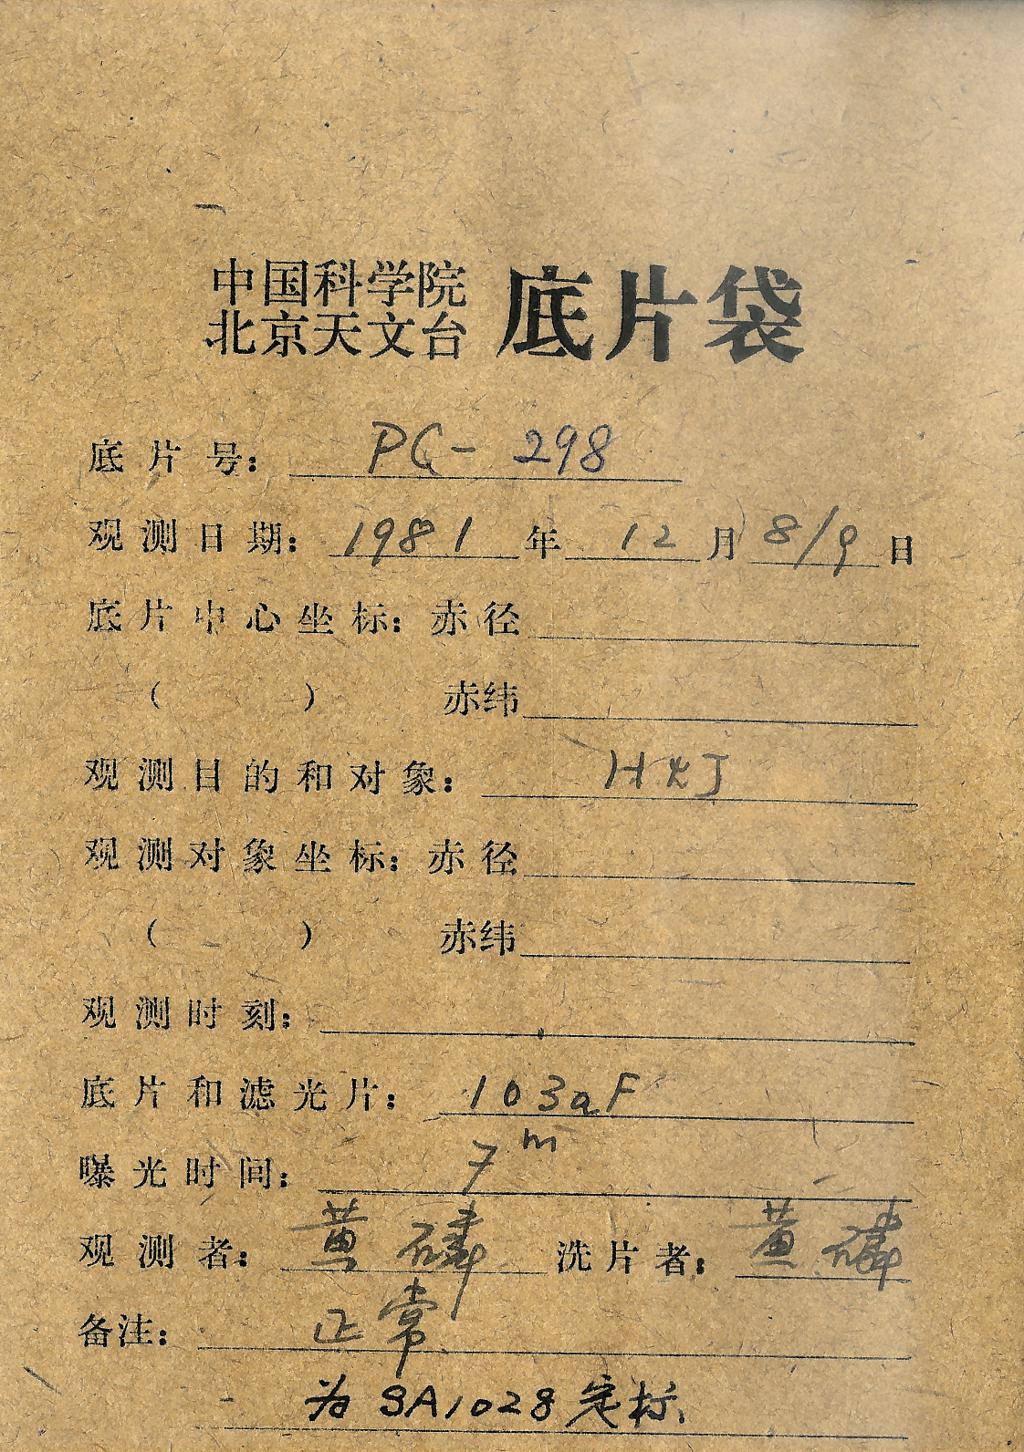 中国科学院
北京天文台 底片袋
底片号: PC- 298
观测日期: 1981 年 12 月 8/9 日
底片中心坐标: 赤径
( ) 赤纬
观测目的和对象:
观测对象坐标: 赤径
( ) 赤纬
观测时刻:
底片和滤光片: 103aF
曝光时间: 7m
观测者: 黄磷 洗片者: 黄磷
备注: 正常
为SA1028定标